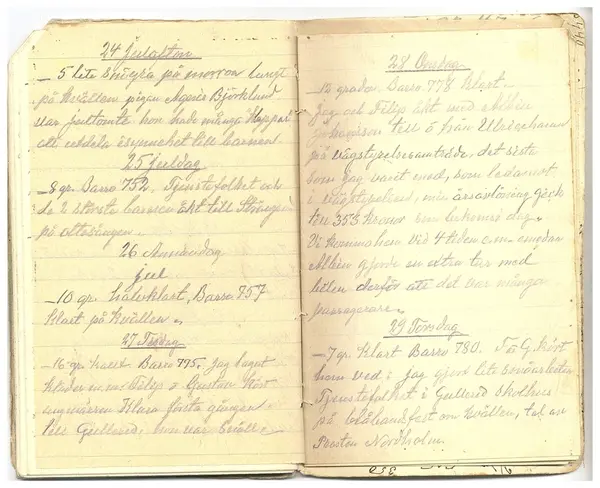 24 Julafton
– 5 lite snögra på morron lungt
på kvällen pigan Agnes Björklund
var jultomte hon hade många klappar
att utdela isynnehet till barnen
25 juldag
– 8 gr. Barro 752. Tjenstefolket och
de 2 största barnen åkt till
på ottosången.
26 Annandag
Jul
– 10 gr. halvklart, Barro. 757
klart på kvällen.
27 Tisdag
– 16 gr. klart Barro 775. Jag
Filip o Gustav kört
Klara första gången
till Gullered, hon var
28 Onsdag
– 12 grader Barro 778 klart.
Jag och Filip åkt med Albin
till å från Ulricehamn
på vägstyrelsesamträde, det siste
som jag varit med, som ledamot
i vägstyrelsen, min årsavlöning gick
till 353 kronor som bekoms i dag.
Vi kommo hem vid 4 tiden e.m. emedan
Albin gjorde en extra tur med
bilen derför att det var många
passagerare.
29 Torsdag
– 7 gr. Klart Barro 780. F o G. kört
hem ved i jag gjort lite
Tjenstefolket i Gullered skolhus
på om kvällen, tal av
Pastor Nordholm.